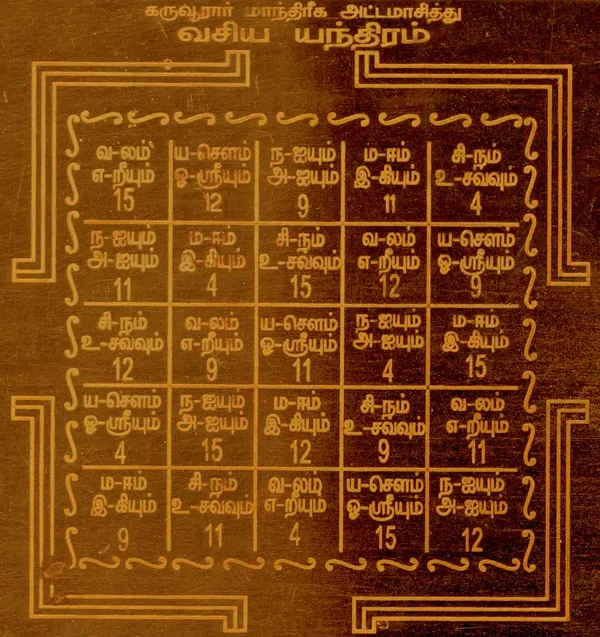 கருவூரார் மாந்திரீக அட்டமாசித்து
வசிய யந்திரம்
வ-லம் ய-சௌம் ந-ஐயும் ம-ஈம் சி-நம்
எ-றியும் ஓ-ஸ்ரீயும் அ-ஐயும் இ-கியும் உ-சவ்வும்
15 12 9 11 4
ந-ஐயும் ம-ஈம் சி-நம் வ-லம் ய-சௌம்
அ-ஐயும் இ-கியும் உ-சவ்வும் எ-றியும் ஓ-ஸ்ரீயும்
11 4 15 12 9
சி-நம் வ-லம் ய-சௌம் ந-ஐயும் ம-ஈம்
உ-சவ்வும் எ-றியும் ஓ-ஸ்ரீயும் அ-ஐயும் இ-கியும்
12 9 11 4 15
ய-சௌம் ந-ஐயும் ம-ஈம் சி-நம் வ-லம்
ஓ-ஸ்ரீயும் அ-ஐயும் இ-கியும் உ-சவ்வும் எ-றியும்
4 15 12 9 11
ம-ஈம் சி-நம் வ-லம் ய-சௌம் ந-ஐயும்
இ-கியும் உ-சவ்வும் எ-றியும் ஓ-ஸ்ரீயும் அ-ஐயும்
9 11 4 15 12